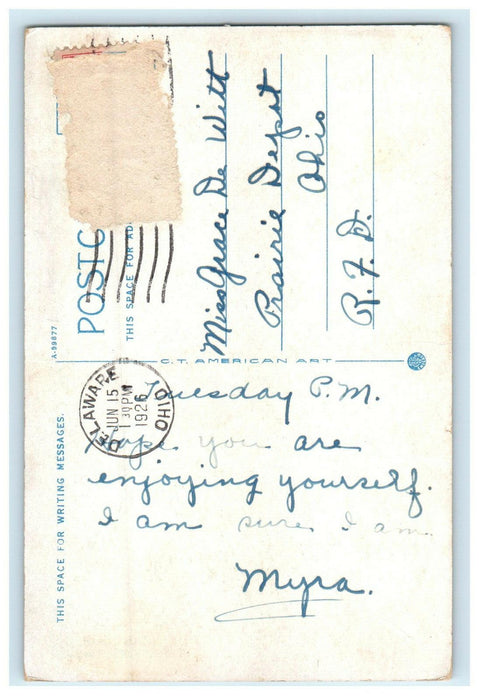 POSTC
THIS SPACE FOR AD
A-99877
Miss Grace De Witt
Prairie Depot
Ohio
R.F.D.
C.T. AMERICAN ART
DELAWARE OHIO
JUN 15
1 30 PM
1926
THIS SPACE FOR WRITING MESSAGES.
Tuesday P.M.
Hope you are
enjoying yourself.
I am sure I am.
Myra.